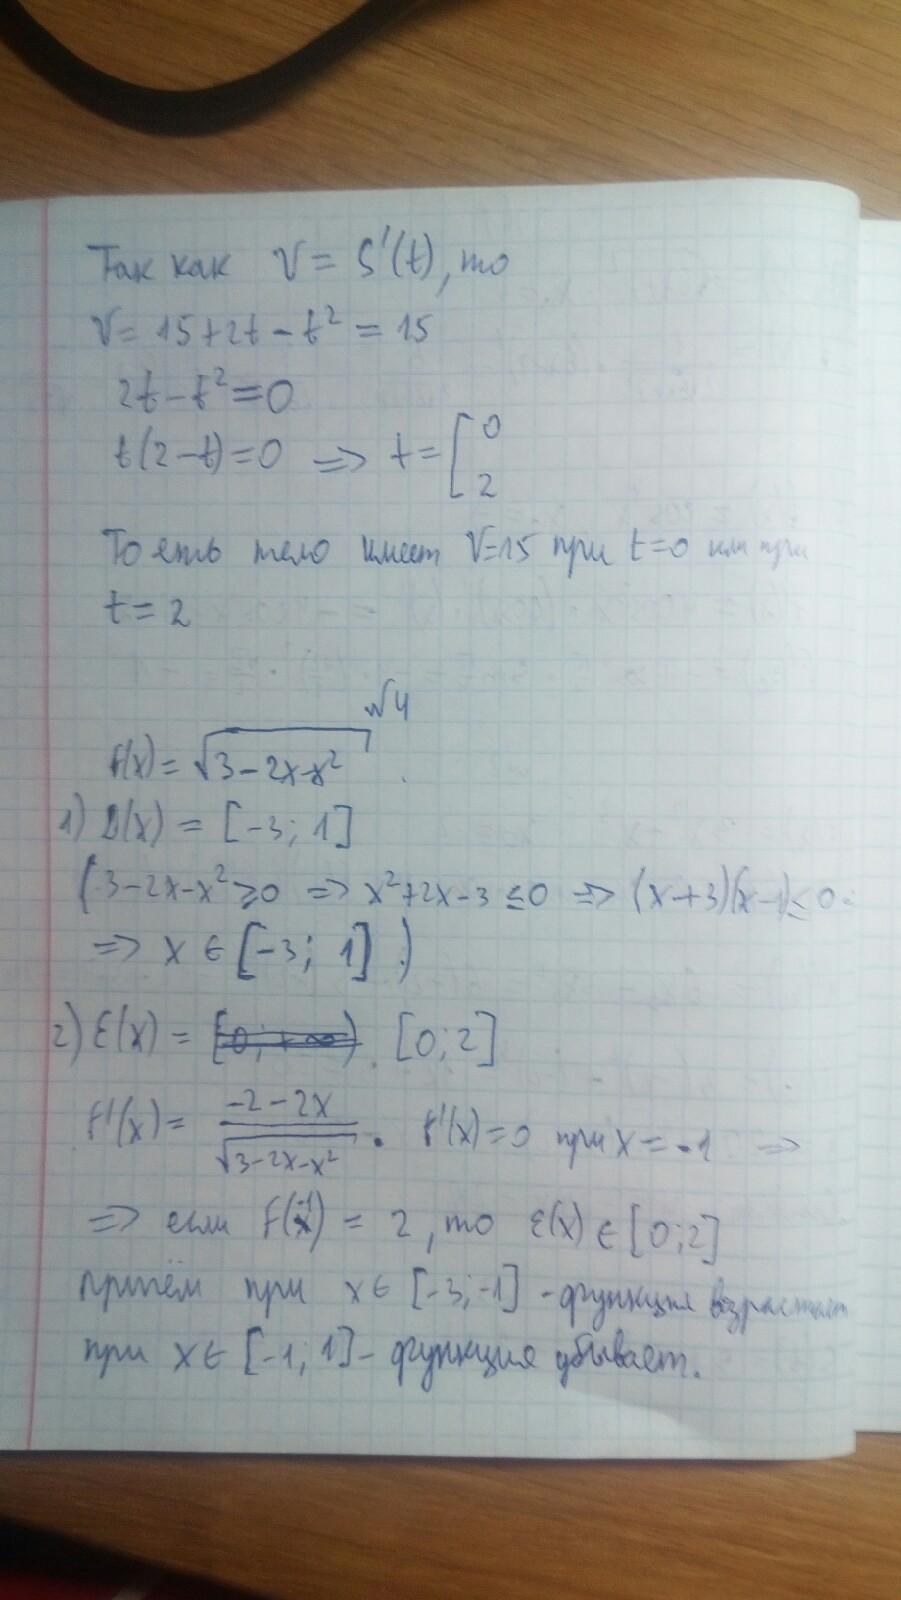 Так как V = S'(t), то
V = 15+2t - t² = 15
2t - t² = 0
t(2-t) = 0 => t = [ 0
2
То есть тело имеет V=15 при t=0 или при
t = 2
№4
f(x) = √3-2x-x²
1) D(x) = [-3; 1]
(3-2x-x² ≥ 0 => x²+2x-3 ≤ 0 => (x+3)(x-1) ≤ 0
=> x ∈ [-3; 1] )
2) E(x) = [0; +∞) [0; 2]
f'(x) = -2-2x / √3-2x-x² . f'(x)=0 при x = -1 =>
=> если f(-1) = 2, то E(x) ∈ [0; 2]
причём при x ∈ [-3; -1] - функция возрастает
при x ∈ [-1; 1] - функция убывает.